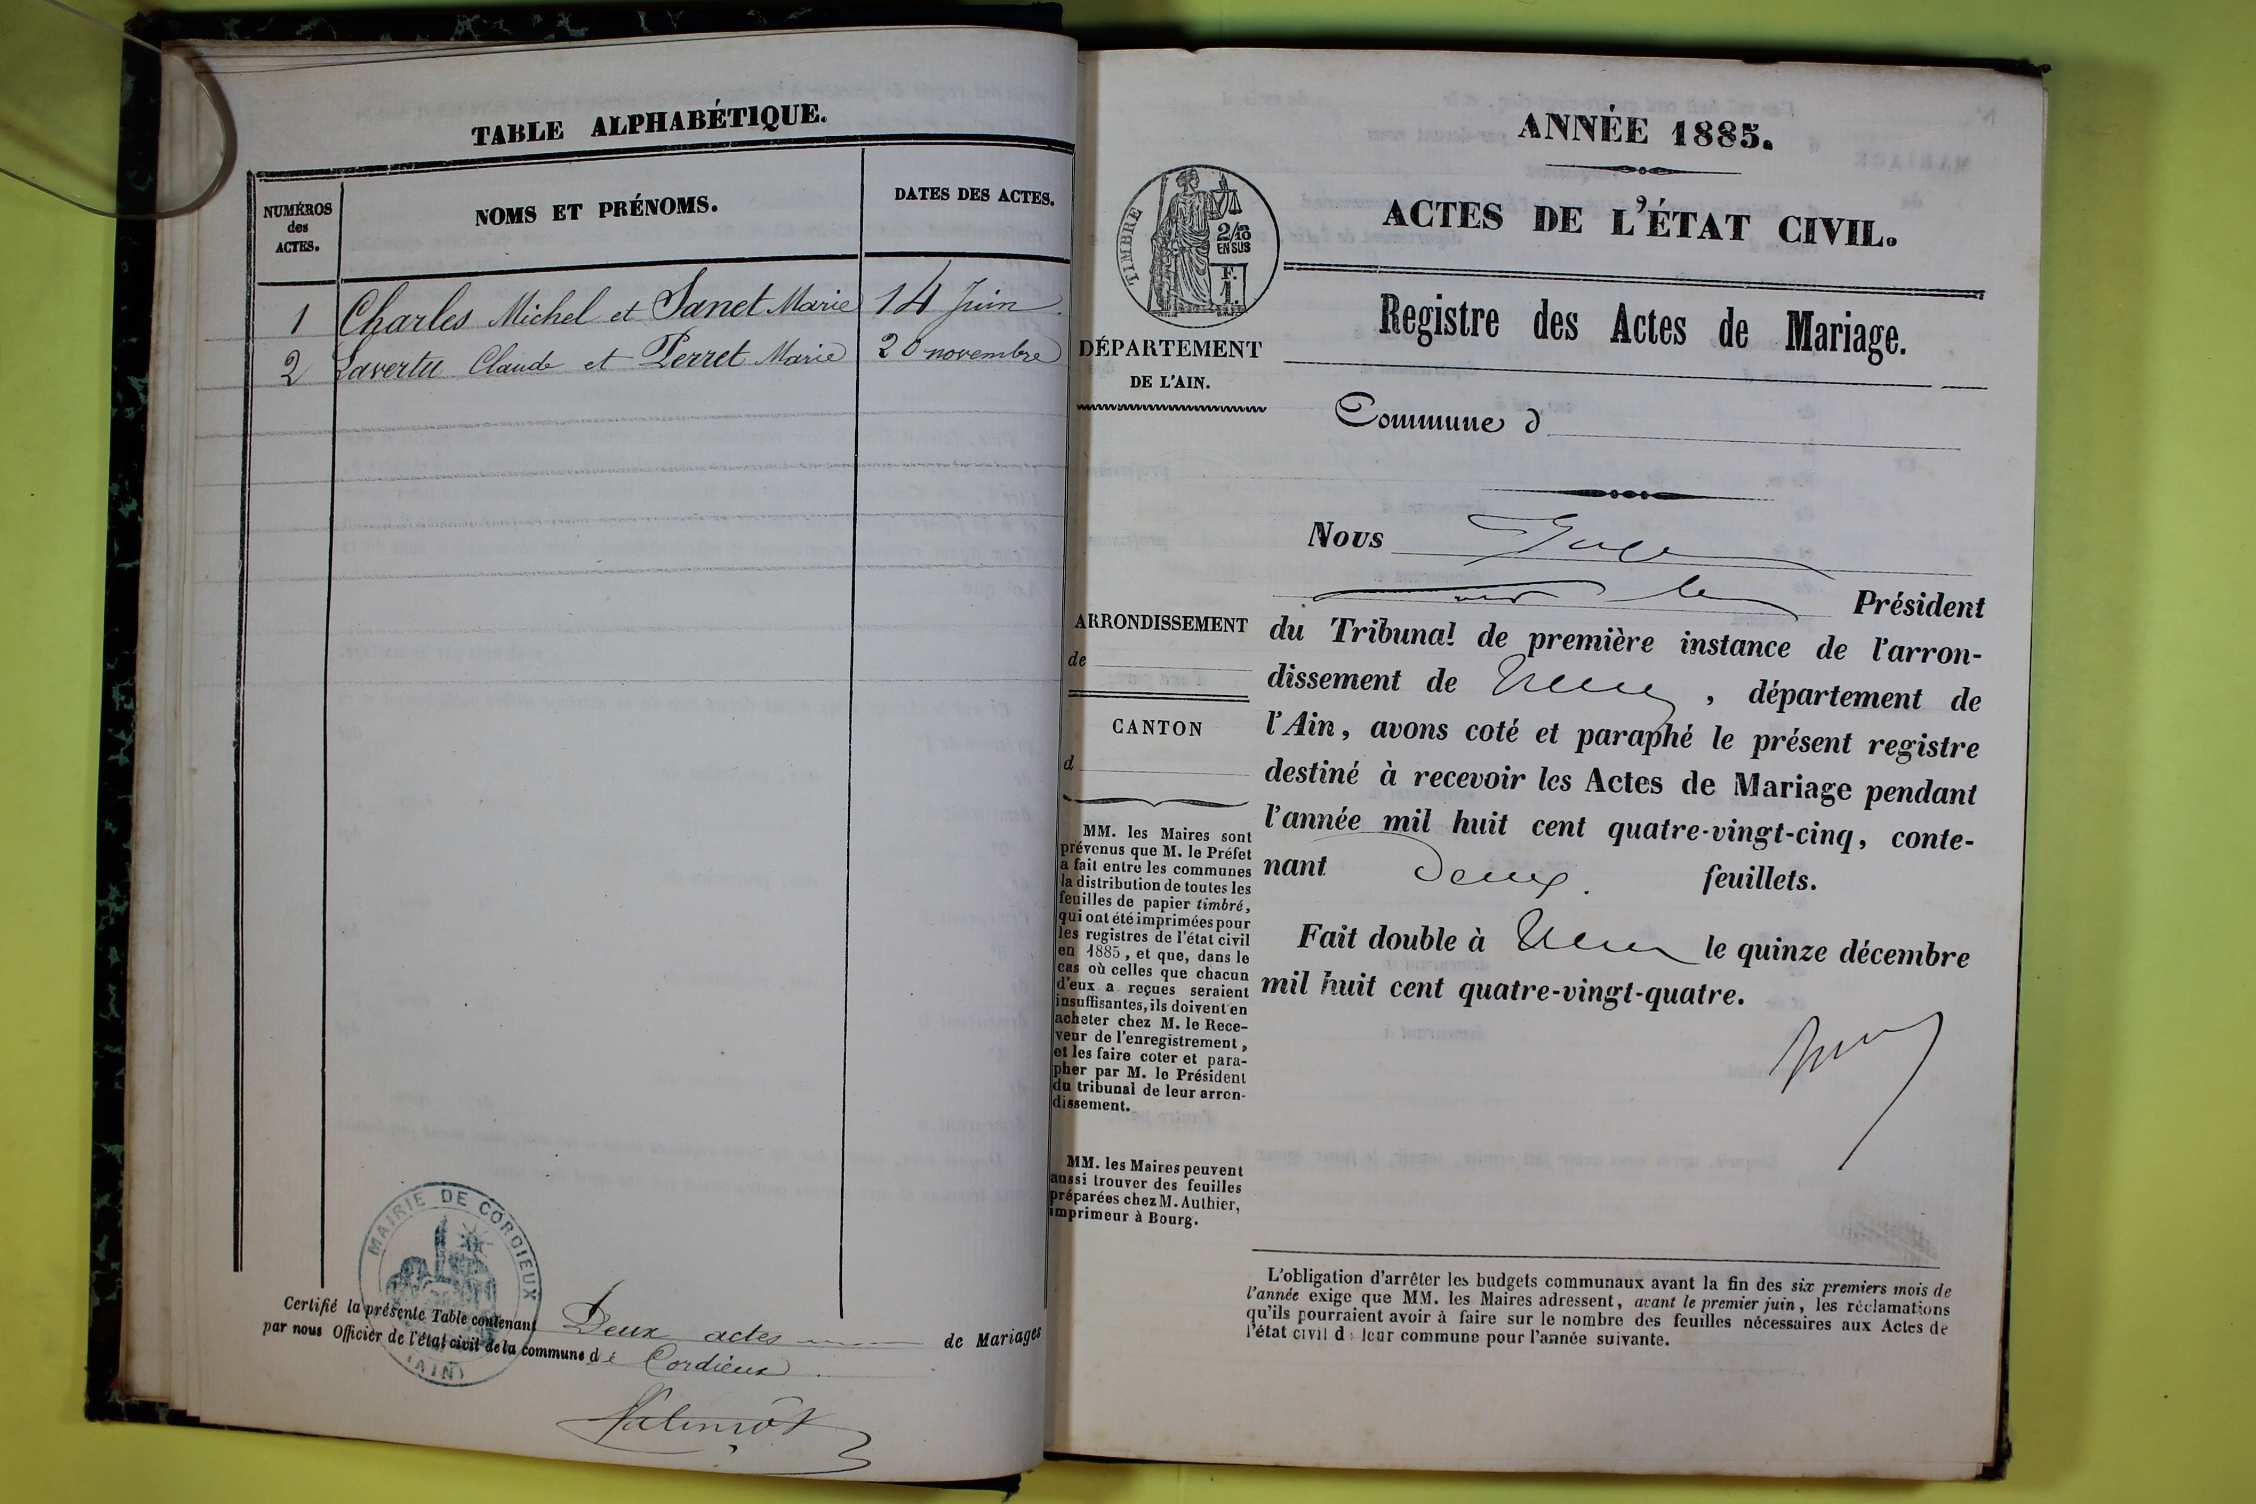 TABLE ALPHABÉTIQUE.
NUMÉROS
des
ACTES.
NOMS ET PRÉNOMS.
DATES DES ACTES.
1 Charles Michel et Janet Marie 14 Juin
2 Lavertu Claude et Perret Marie 20 novembre
MAIRIE DE CORCIEUX
(AIN)
Certifié la présente Table contenant Deux actes de Mariages
par nous Officier de l'état civil de la commune de Cordieux
ANNÉE 1885.
ACTES DE L'ÉTAT CIVIL.
TIMBRE
2/10
EN SUS
F.
1.
DÉPARTEMENT
DE L'AIN.
Registre des Actes de Mariage.
Commune d
ARRONDISSEMENT
de
CANTON
d
MM. les Maires sont
prévenus que M. le Préfet
a fait entre les communes
la distribution de toutes les
feuilles de papier timbré,
qui ont été imprimées pour
les registres de l'état civil
en 1885, et que, dans le
cas où celles que chacun
d'eux a reçues seraient
insuffisantes, ils doivent en
acheter chez M. le Rece-
veur de l'enregistrement,
et les faire coter et para-
pher par M. le Président
du tribunal de leur arron-
dissement.
MM. les Maires peuvent
aussi trouver des feuilles
préparées chez M. Authier,
imprimeur à Bourg.
Nous
Président
du Tribunal de première instance de l'arron-
dissement de , département de
l'Ain, avons coté et paraphé le présent registre
destiné à recevoir les Actes de Mariage pendant
l'année mil huit cent quatre-vingt-cinq, conte-
nant Deux feuillets.
Fait double à le quinze décembre
mil huit cent quatre-vingt-quatre.
L'obligation d'arrêter les budgets communaux avant la fin des six premiers mois de
l'année exige que MM. les Maires adressent, avant le premier juin, les réclamations
qu'ils pourraient avoir à faire sur le nombre des feuilles nécessaires aux Actes de
l'état civil de leur commune pour l'année suivante.